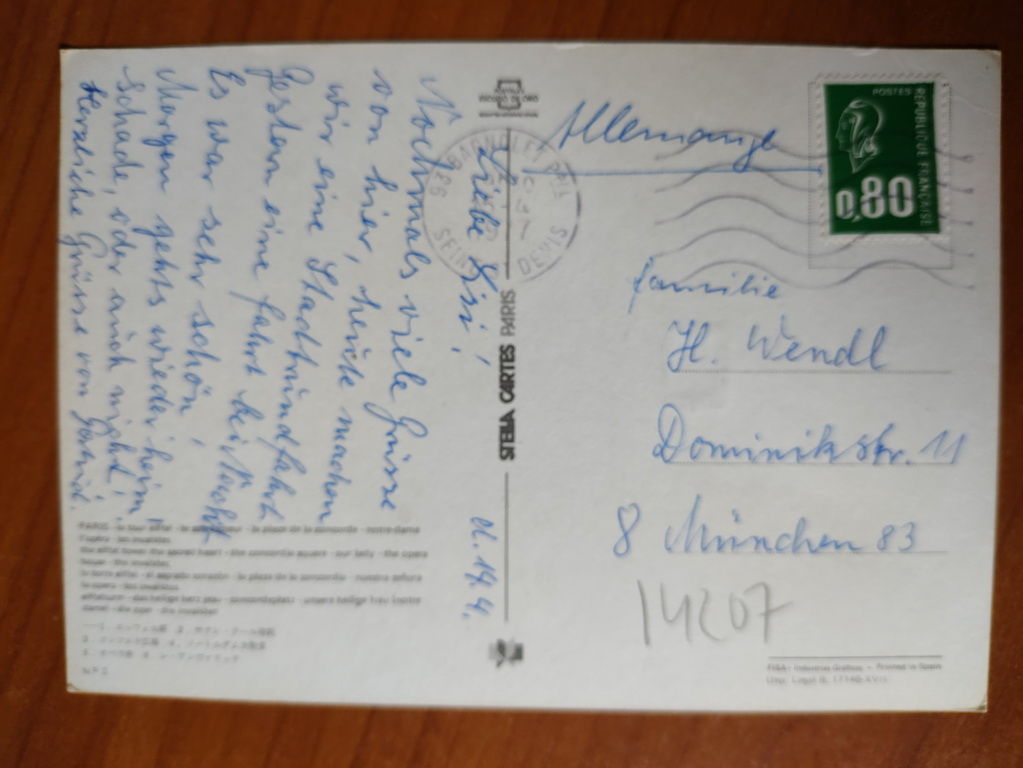 Liebe Sisi!
Nochmals viele Grüsse
von hier, heute machen
wir eine Stadtrundfahrt
Gestern eine fahrt bei Nacht
Es war sehr schön!
Morgen gehts wieder heim,
Schade, oder auch nicht!
Herzliche Grüsse von
Allemange
REPUBLIQUE FRANÇAISE
POSTES
0,80
BAGNOLET PPAL
SEINE DENIS
familie
H. Wendl
Dominikstr. 11
8 München 83
14207
STELLA CARTES PARIS
PARIS - la tour eiffel - le - la place de la concorde - notre dame
l'opera - les invalides
the eiffel tower the sacred heart - the concordia square - our lady - the opera
house - the invalides
la torre eiffel - el sagrado corazón - la plaza de la concordia - nuestra señora
la opera - los invalidos
eiffelturm - das heilige herz jesu - concordiaplatz - unsere heilige frau (notre
dame) - die oper - die invaliden
FISA - Industrias Gráficas - Printed in Spain